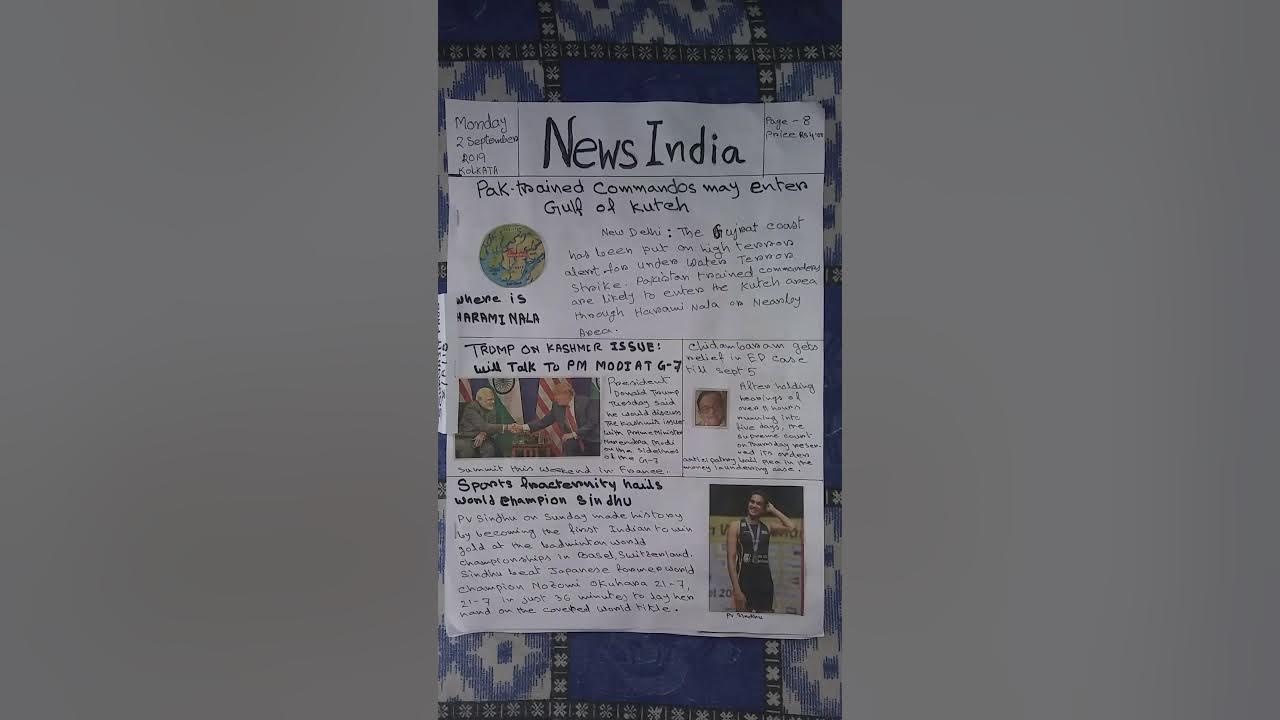 Monday
2 September
2019
KOLKATA
News India
Page - 8
Price Rs 4.00
Pak-trained Commandos may enter
Gulf of Kutch
New Delhi : The Gujrat coast
has been put on high terror
alert for under water Terror
Strike. Pakistan trained commanders
are likely to enter the Kutch area
through Harami Nala or Nearby
Area.
Where is
HARAMI NALA
TRUMP ON KASHMIR ISSUE:
Will Talk To PM MODI AT G-7
President
Donald Trump
Tuesday said
he would discuss
The Kashmir issue
with Prime Minister
Narendra Modi
on the sidelines
of the G-7
summit this weekend in France.
Chidambaram gets
relief in ED case
till Sept 5
After holding
hearings of
over 11 hours
running into
five days, the
supreme court
on Thursday reser-
ved its orders
anticipatory bail plea in the
money laundering case.
Sports fracternity hails
world champion Sindhu
PV Sindhu on Sunday made history
by becoming the first Indian to win
gold at the badminton world
championships in Basel, Switzerland.
Sindhu beat Japanese former world
champion Nozomi Okuhara 21-7,
21-7 in just 36 minutes to lay her
hand on the coveted world title.
PV Sindhu